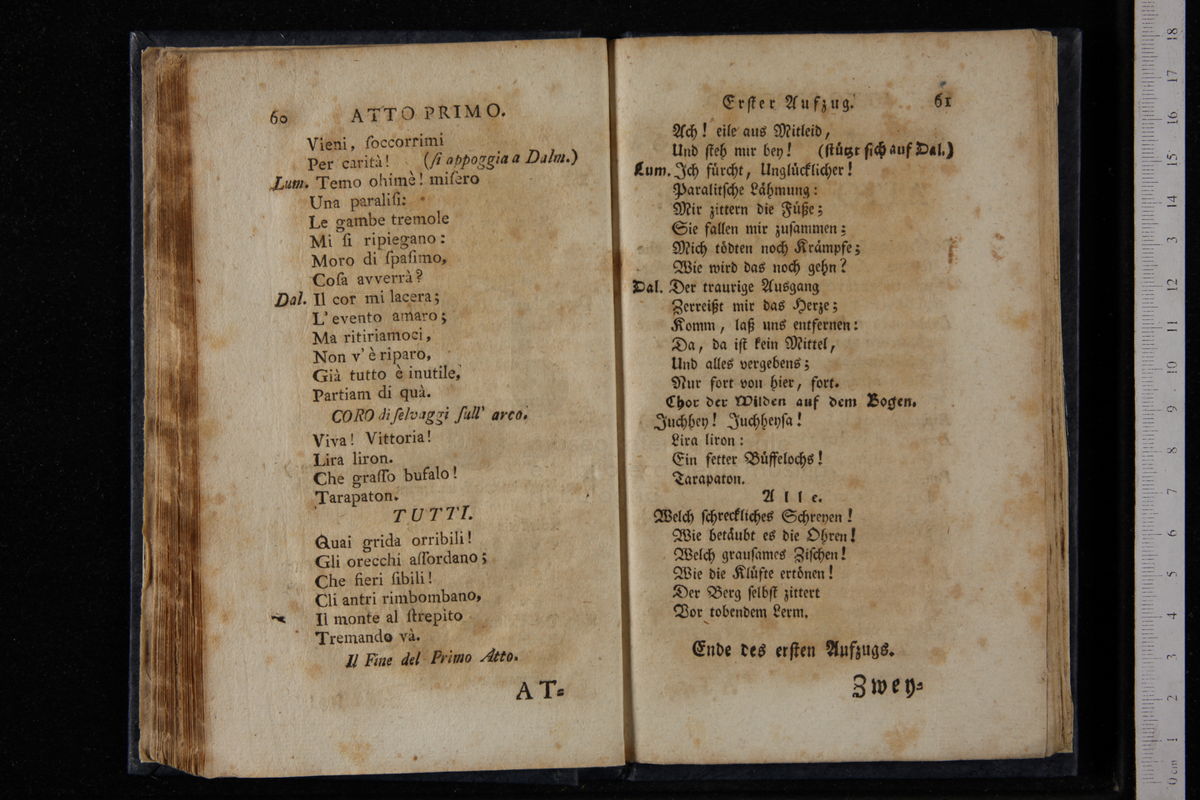 60 ATTO PRIMO.
Vieni, ſoccorrimi
Per carità! (ſi appoggia a Dalm.)
Lum. Temo ohimè! miſero
Una paraliſi:
Le gambe tremole
Mi ſi ripiegano:
Moro di ſpaſimo,
Coſa avverrà?
Dal. Il cor mi lacera;
L' evento amaro;
Ma ritiriamoci,
Non v' è riparo,
Già tutto è inutile,
Partiam di quà.
CORO di ſelvaggi ſull' arco.
Viva! Vittoria!
Lira liron.
Che graſſo bufalo!
Tarapaton.
TUTTI.
Quai grida orribili!
Gli orecchi aſſordano;
Che fieri ſibili!
Cli antri rimbombano,
Il monte al ſtrepito
Tremando và.
Il Fine del Primo Atto.
AT=
Erſter Aufzug. 61
Ach! eile aus Mitleid,
Und ſteh mir bey! (ſtützt ſich auf Dal.)
Lum. Ich fürcht, Unglücklicher!
Paralitſche Lähmung:
Mir zittern die Füße;
Sie fallen mir zuſammen;
Mich tödten noch Krämpfe;
Wie wird das noch gehn?
Dal. Der traurige Ausgang
Zerreißt mir das Herze;
Komm, laß uns entfernen:
Da, da iſt kein Mittel,
Und alles vergebens;
Nur fort von hier, fort.
Chor der Wilden auf dem Bogen.
Juchhey! Juchheyſa!
Lira liron:
Ein fetter Büffelochs!
Tarapaton.
Alle.
Welch ſchreckliches Schreyen!
Wie betäubt es die Ohren!
Welch grauſames Ziſchen!
Wie die Klüfte ertönen!
Der Berg ſelbſt zittert
Vor tobendem Lerm.
Ende des erſten Aufzugs.
Zwey=
0 cm 1 2 3 4 5 6 7 8 9 10 11 12 13 14 15 16 17 18